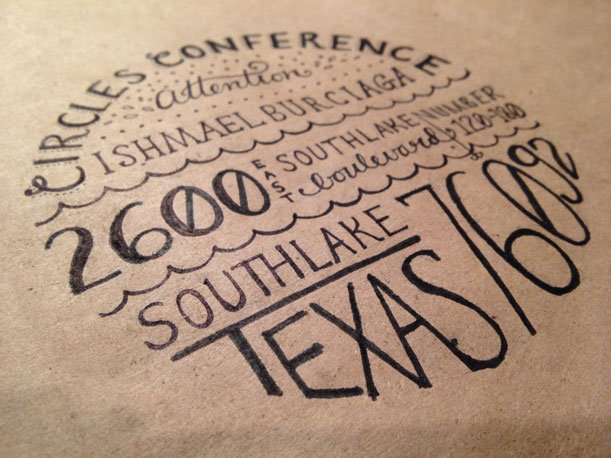 CIRCLES CONFERENCE
attention
ISHMAEL BURCIAGA
2600 EAST SOUTHLAKE boulevard
120-180
SOUTHLAKE
TEXAS 76092